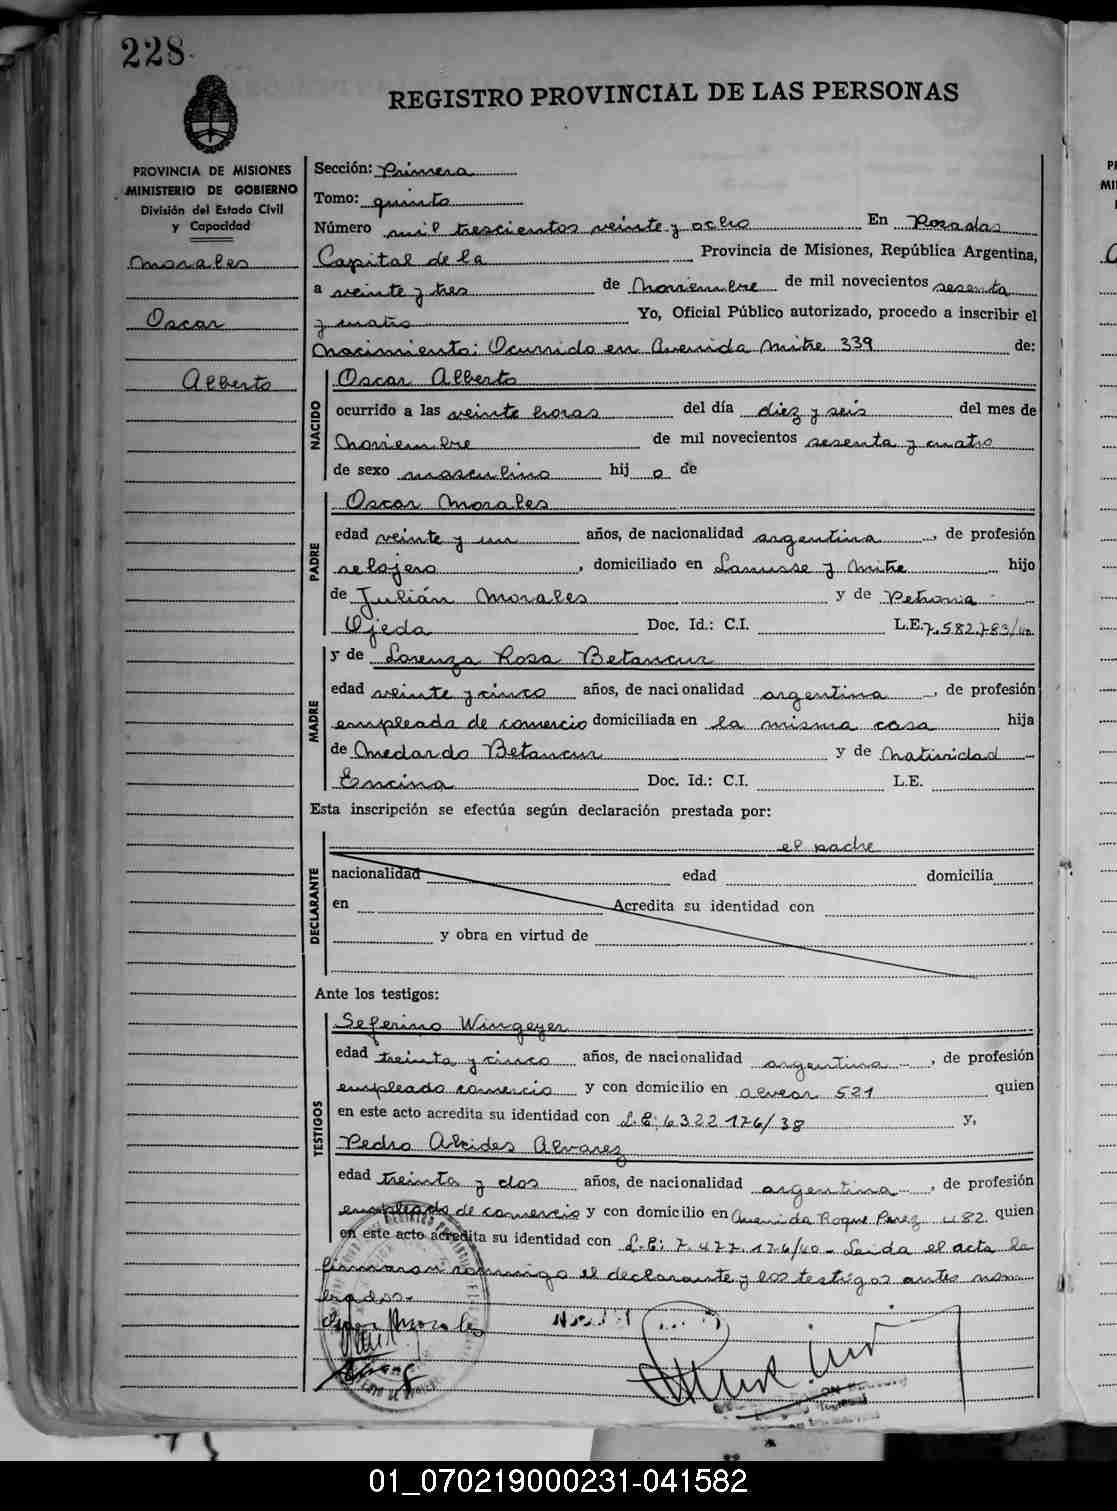 228
REGISTRO PROVINCIAL DE LAS PERSONAS
PROVINCIA DE MISIONES
MINISTERIO DE GOBIERNO
División del Estado Civil
y Capacidad
Morales
Oscar
Alberto
Sección: Primera
Tomo: quinto
Número mil trescientos veinte y ocho En Posadas
Capital de la Provincia de Misiones, República Argentina,
a veinte y tres de Noviembre de mil novecientos sesenta
y cuatro Yo, Oficial Público autorizado, procedo a inscribir el
Nacimiento: Ocurrido en Avenida Mitre 339 de:
NACIDO
Oscar Alberto
ocurrido a las veinte horas del día diez y seis del mes de
Noviembre de mil novecientos sesenta y cuatro
de sexo masculino hij o de
PADRE
Oscar Morales
edad veinte y un años, de nacionalidad argentina, de profesión
relojero, domiciliado en Lanusse y Mitre hijo
de Julián Morales y de Petrona
Ojeda Doc. Id.: C.I. L.E. 7.582.783/
MADRE
y de Lorenza Rosa Betancur
edad veinte y cinco años, de nacionalidad argentina, de profesión
empleada de comercio domiciliada en la misma casa hija
de Medardo Betancur y de Natividad
Encina Doc. Id.: C.I. L.E.
Esta inscripción se efectúa según declaración prestada por:
DECLARANTE
el padre
nacionalidad edad domicilia
en Acredita su identidad con
y obra en virtud de
Ante los testigos:
TESTIGOS
Seferino Wingeyer
edad treinta y cinco años, de nacionalidad argentina, de profesión
empleado comercio y con domicilio en Alvear 521 quien
en este acto acredita su identidad con L.E: 6322176/38 y,
Pedro Alcides Alvarez
edad treinta y dos años, de nacionalidad argentina, de profesión
empleado de comercio y con domicilio en Avenida Roque Perez 482 quien
en este acto acredita su identidad con L.E: 7.477.176/40 - Leida el acta la
firmaron conmigo el declarante y los testigos antes nom-
brados.-
Morales
01_070219000231-041582